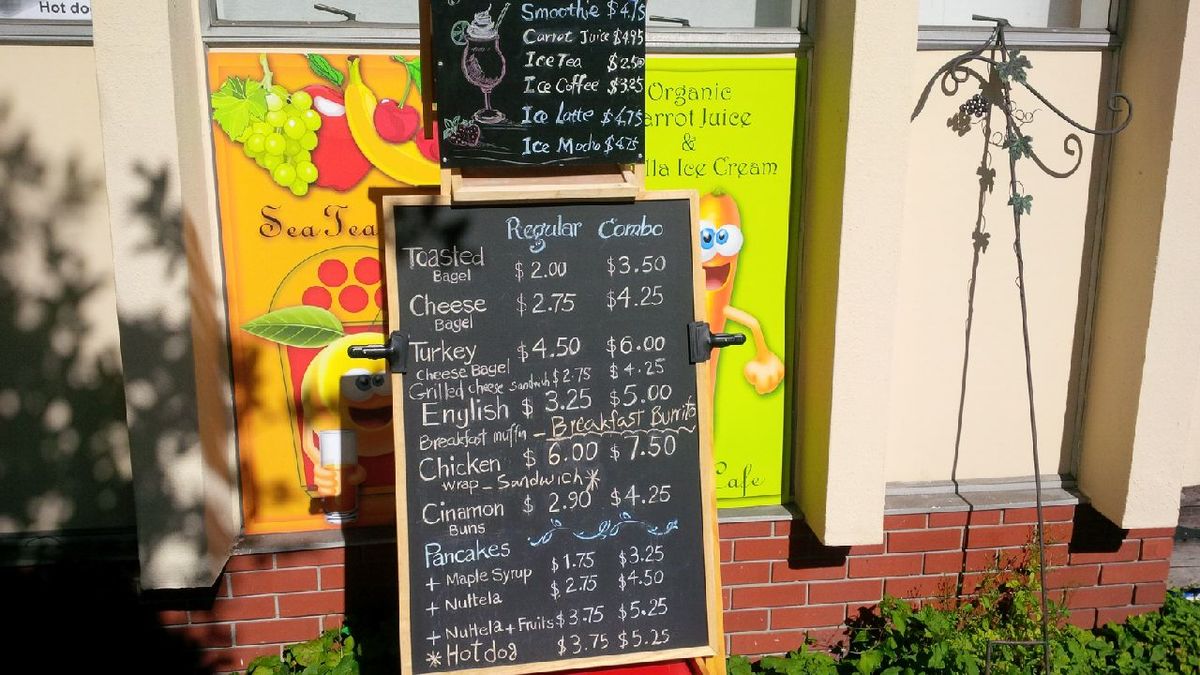 Hot do
Smoothie $4.75
Carrot Juice $4.95
Ice Tea $2.50
Ice Coffee $3.25
Ice Latte $4.75
Ice Mocha $4.75
Organic
arrot Juice
&
lla Ice Cream
Sea Tea
Cafe
Regular Combo
Toasted Bagel $2.00 $3.50
Cheese Bagel $2.75 $4.25
Turkey $4.50 $6.00
Cheese Bagel
Grilled cheese sandwich $2.75 $4.25
English $3.25 $5.00
Breakfast muffin - Breakfast Burrito
Chicken $6.00 $7.50
wrap - Sandwich *
Cinamon Buns $2.90 $4.25
Pancakes
+ Maple Syrup $1.75 $3.25
+ Nuttela $2.75 $4.50
+ Nuttela + Fruits $3.75 $5.25
* Hot dog $3.75 $5.25